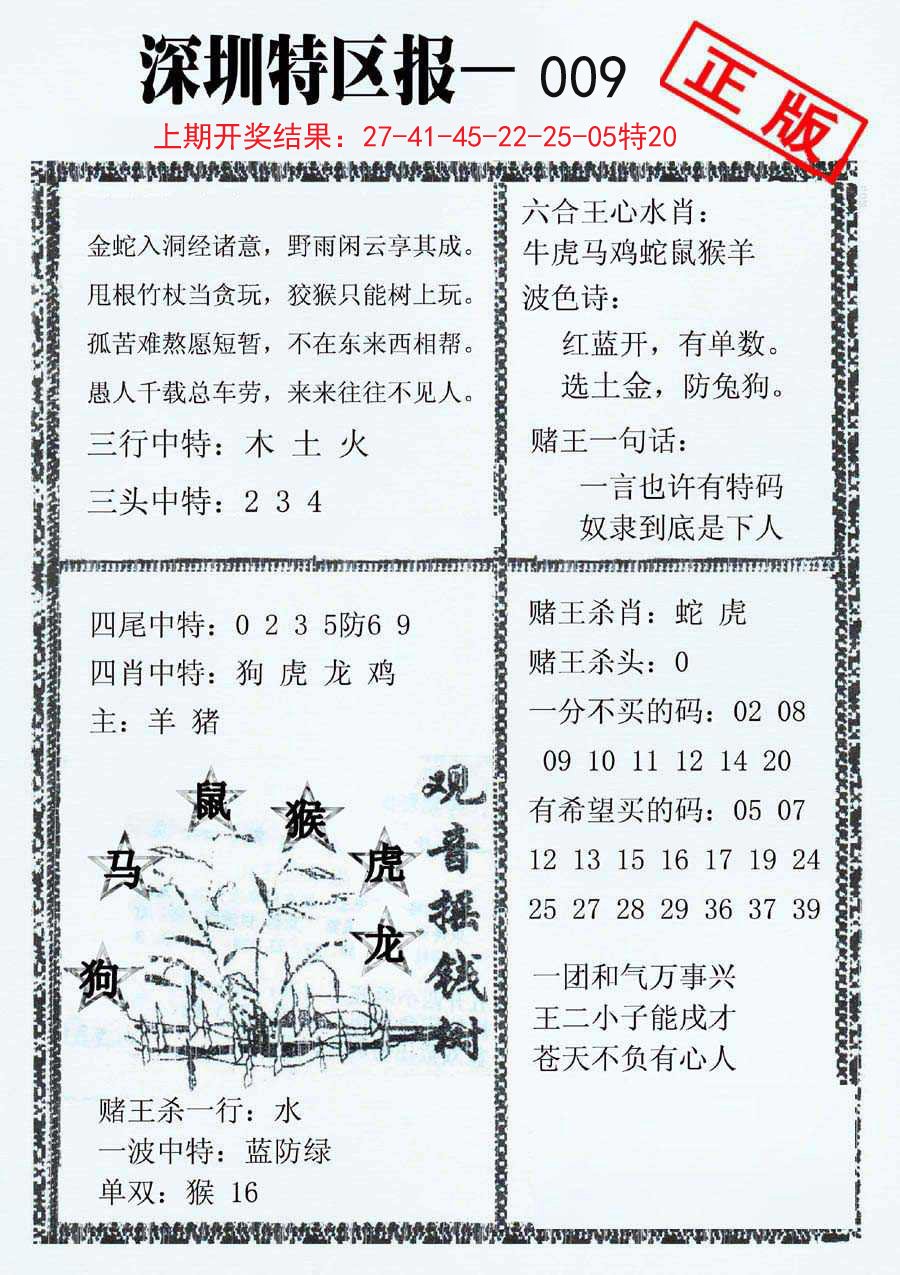 深圳特区报—009
正版
上期开奖结果：27-41-45-22-25-05特20
金蛇入洞经诸意，野雨闲云享其成。
甩根竹杖当贪玩，狡猴只能树上玩。
孤苦难熬愿短暂，不在东来西相帮。
愚人千载总车劳，来来往往不见人。
三行中特：木 土 火
三头中特：2 3 4
六合王心水肖：
牛虎马鸡蛇鼠猴羊
波色诗：
红蓝开，有单数。
选土金，防兔狗。
赌王一句话：
一言也许有特码
奴隶到底是下人
四尾中特：0 2 3 5防6 9
四肖中特：狗 虎 龙 鸡
主：羊 猪
鼠
猴
马
虎
龙
狗
观音摇钱树
赌王杀一行：水
一波中特：蓝防绿
单双：猴 16
赌王杀肖：蛇 虎
赌王杀头：0
一分不买的码：02 08
09 10 11 12 14 20
有希望买的码：05 07
12 13 15 16 17 19 24
25 27 28 29 36 37 39
一团和气万事兴
王二小子能戌才
苍天不负有心人